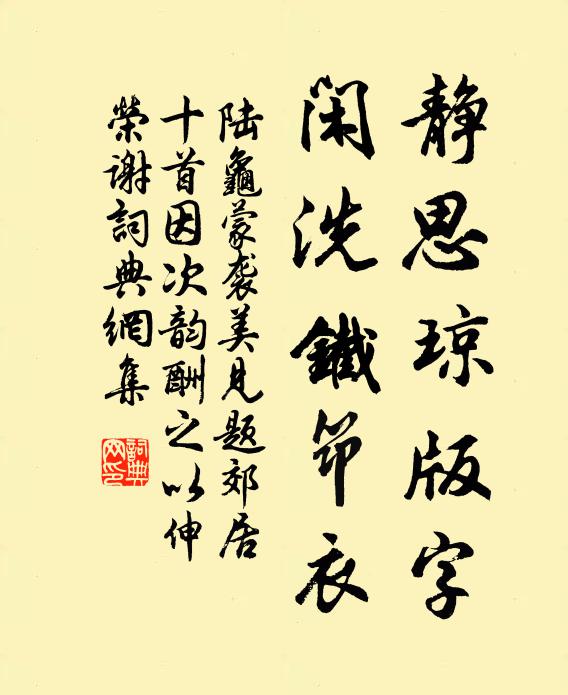 静思琼版字
闲洗鐵筇衣
陆龜蒙袭美見題郊居
十首因次韵酬之以伸
榮谢詞典網集
詞典网印